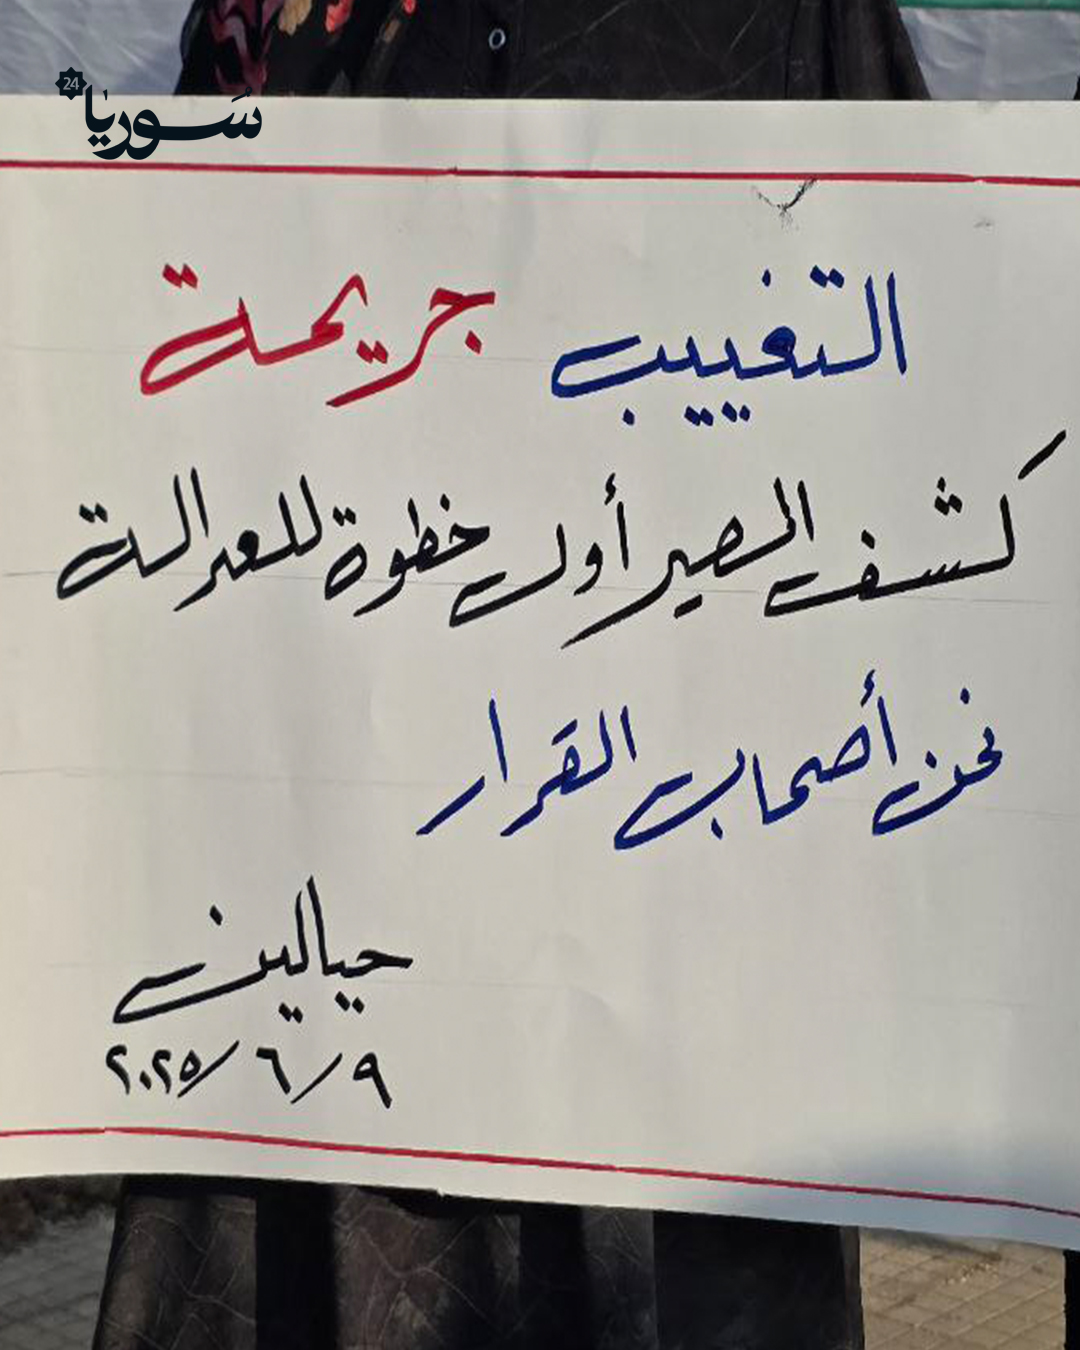 سُوريا 24
التغييب جريمة
كشف المصير أول خطوة للعدالة
نحن أصحاب القرار
حيالين
٢٠٢٥/٦/٩